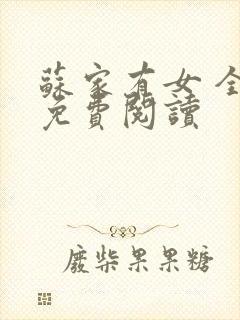 蘇家有女全
免費閱讀
廢柴果果糖